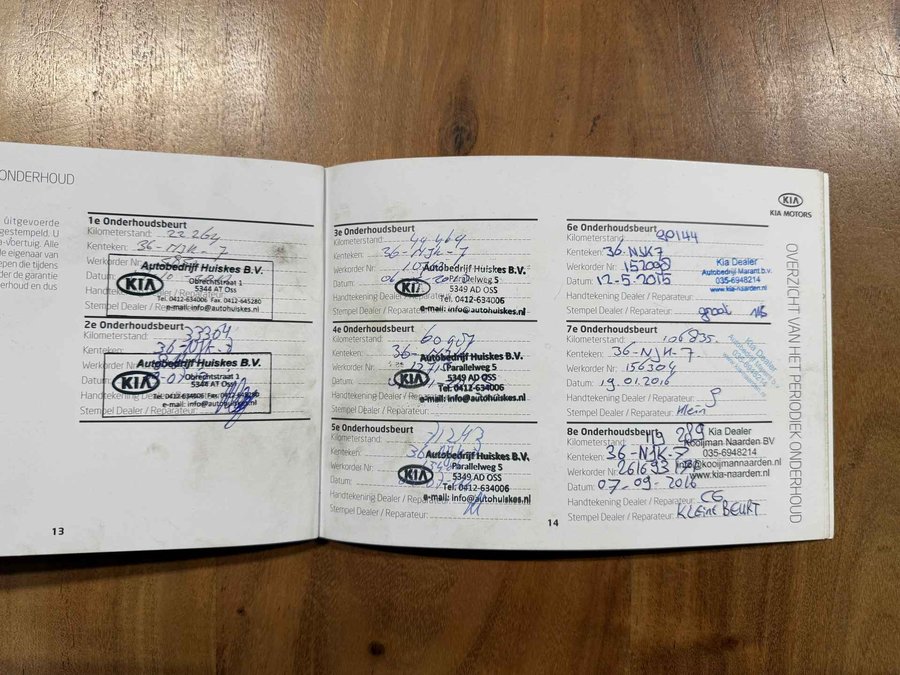 ONDERHOUD
uitgevoerde
gestempeld. U
a-voertuig. Alle
de eigenaar van
en die tijdens
der de garantie
derhoud en dus
1e Onderhoudsbeurt
Kilometerstand: 22264
Kenteken: 36-NJK-7
Werkorder Nr
Datum:
Handtekening
Stempel Dealer
Autobedrijf Huiskes B.V.
KIA
Obrechtstraat 1
5344 AT Oss
Tel. 0412-634006 Fax. 0412-645280
e-mail: info@autohuiskes.nl
2e Onderhoudsbeurt
Kilometerstand: 33304
Kenteken:
Werkorder
Datum:
Handtekening
Stempel Dealer / Reparateur:
Autobedrijf Huiskes B.V.
KIA
Obrechtstraat 1
5344 AT Oss
Tel. 0412-634006 Fax. 0412-645280
e-mail: info@autohuiskes.nl
13
3e Onderhoudsbeurt
Kilometerstand: 44469
Kenteken: 36-NJK-7
Werkorder Nr:
Datum:
Handtekening
Stempel Dealer / Reparateur:
Autobedrijf Huiskes B.V.
KIA
Parallelweg 5
5349 AD OSS
Tel. 0412-634006
e-mail: info@autohuiskes.nl
4e Onderhoudsbeurt
Kilometerstand:
Kenteken: 36-
Werkorder Nr
Datum:
Handtekening Dealer / Reparateur
Stempel Dealer / Reparateur:
Autobedrijf Huiskes B.V.
KIA
Parallelweg 5
5349 AD OSS
Tel. 0412-634006
e-mail: info@autohuiskes.nl
5e Onderhoudsbeurt
Kilometerstand: 71243
Kenteken: 36
Werkorder Nr
Datum:
Handtekening Dealer / Reparateur
Stempel Dealer / Reparateur:
Autobedrijf Huiskes B.V.
KIA
Parallelweg 5
5349 AD OSS
Tel. 0412-634006
e-mail: info@autohuiskes.nl
14
6e Onderhoudsbeurt
Kilometerstand: 90144
Kenteken: 36-NJK7
Werkorder Nr: 152098
Datum: 12-5-2015
Handtekening Dealer / Reparateur:
Stempel Dealer / Reparateur: groot
Kia Dealer
Autobedrijf Marant b.v.
035-6948214
www.kia-naarden.nl
7e Onderhoudsbeurt
Kilometerstand: 106835.
Kenteken: 36-NJK-7.
Werkorder Nr: 156304
Datum: 19.01.2016
Handtekening Dealer / Reparateur:
Stempel Dealer / Reparateur: klein
Kia Dealer
8e Onderhoudsbeurt
Kilometerstand: 119 289
Kenteken: 36-NJK-7
Werkorder Nr: 261693
Datum: 07-09-2016
Handtekening Dealer / Reparateur:
Stempel Dealer / Reparateur: KLEINE BEURT
Kia Dealer
Kooijman Naarden BV
035-6948214
info@kooijmannaarden.nl
www.kia-naarden.nl
KIA
KIA MOTORS
OVERZICHT VAN HET PERIODIEK ONDERHOUD